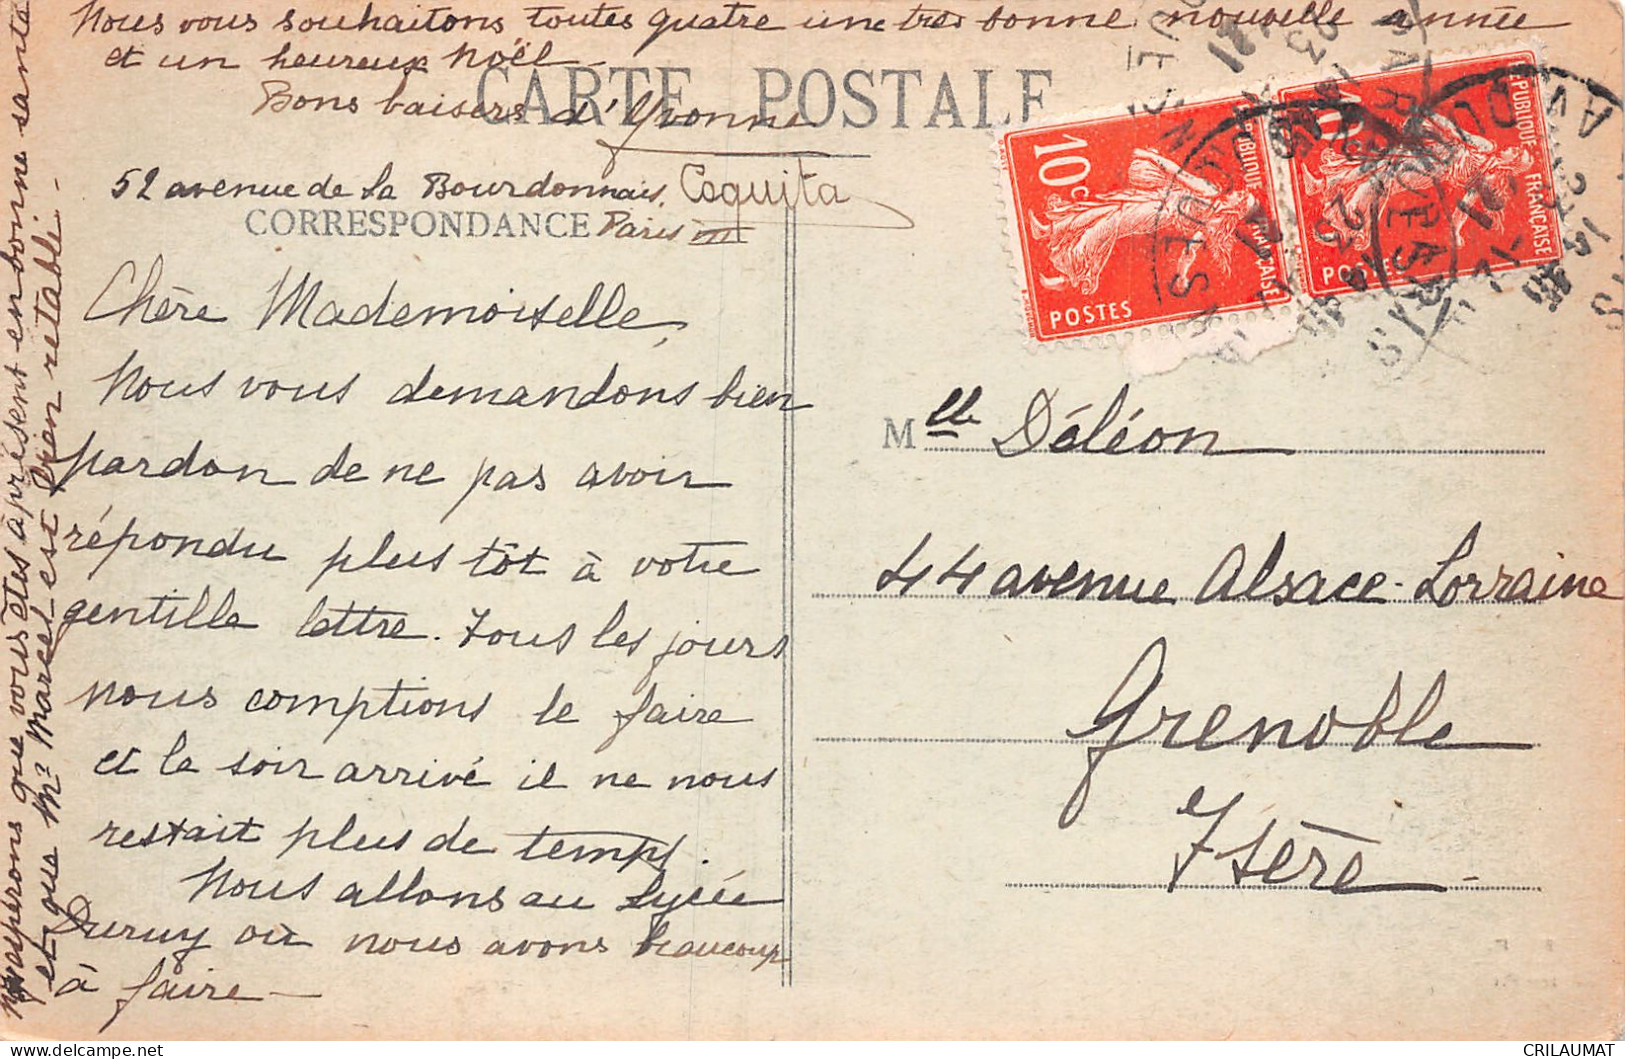 Nous vous souhaitons toutes quatre une très bonne nouvelle année
et un heureux Noël
Bons baisers d'Yvonne
CARTE POSTALE
52 avenue de La Bourdonnais, Coquita
CORRESPONDANCE Paris VII
Chère Mademoiselle,
Nous vous demandons bien
pardon de ne pas avoir
répondu plus tôt à votre
gentille lettre. Tous les jours
nous comptions le faire
et le soir arrivé il ne nous
restait plus de temps.
Nous allons au Lycée
Duruy où nous avons beaucoup
à faire
Nous espérons que vous êtes à présent en bonne santé
et que Mr Marcel est bien rétabli.
10c
POSTES
RÉPUBLIQUE FRANÇAISE
10c
POSTES
RÉPUBLIQUE FRANÇAISE
Mlle Déléon
44 avenue Alsace-Lorraine
Grenoble
Isère
CRILAUMAT